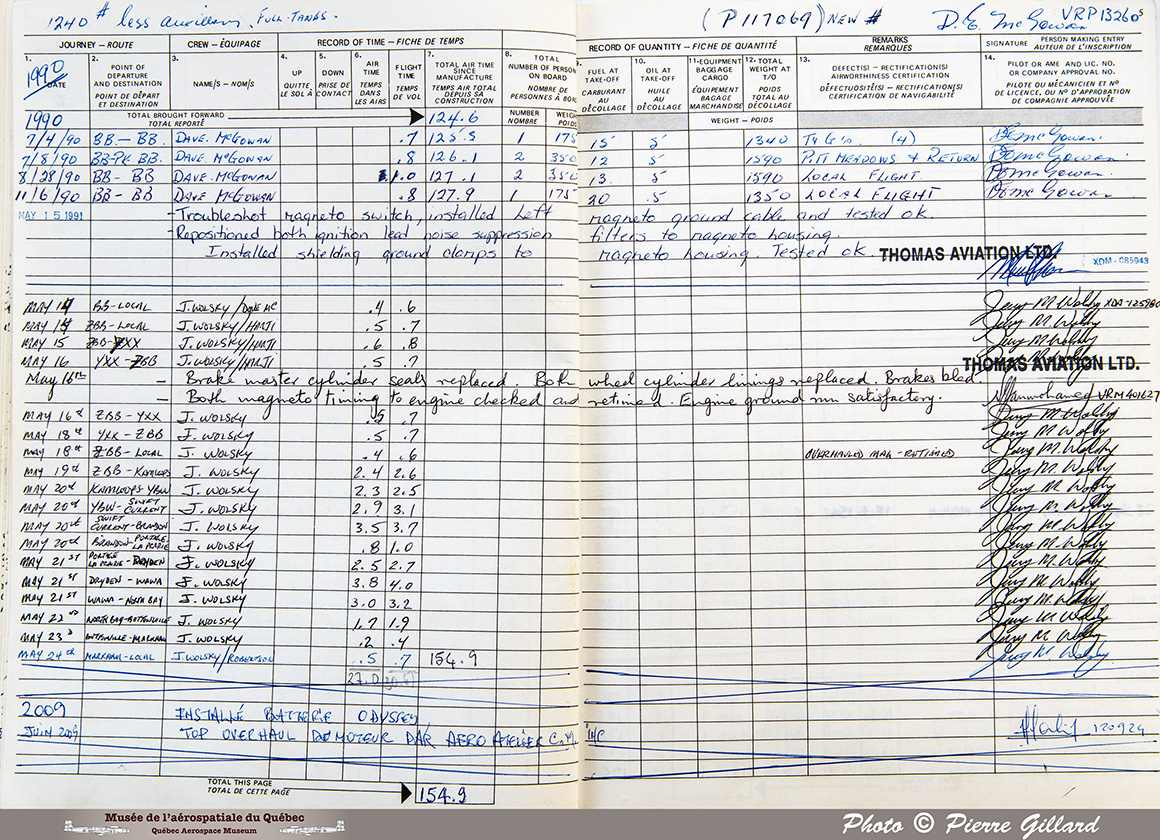 1240 # less auxillary FULL-TANKS.
(P117069) NEW #
D.E. McGowan VRP132605
JOURNEY – ROUTE CREW – ÉQUIPAGE RECORD OF TIME – FICHE DE TEMPS
RECORD OF QUANTITY – FICHE DE QUANTITÉ REMARKS REMARQUES SIGNATURE PERSON MAKING ENTRY AUTEUR DE L'INSCRIPTION
1. 1990 DATE
2. POINT OF DEPARTURE AND DESTINATION POINT DE DÉPART ET DESTINATION
3. NAME/S – NOM/S
4. UP QUITTE LE SOL À
5. DOWN PRISE DE CONTACT
6. AIR TIME TEMPS DANS LES AIRS
FLIGHT TIME TEMPS DE VOL
7. TOTAL AIR TIME SINCE MANUFACTURE TEMPS AIR TOTAL DEPUIS SA CONSTRUCTION
8. TOTAL NUMBER OF PERSON ON BOARD NOMBRE DE PERSONNES À BOR
9. FUEL AT TAKE-OFF CARBURANT AU DÉCOLLAGE
10. OIL AT TAKE-OFF HUILE AU DÉCOLLAGE
11. EQUIPMENT BAGGAGE CARGO ÉQUIPEMENT BAGAGE MARCHANDISE
12. TOTAL WEIGHT AT T/O POIDS TOTAL AU DÉCOLLAGE
13. DEFECT(S) – RECTIFICATION(S) AIRWORTHINESS CERTIFICATION DÉFECTUOSITÉ(S) – RECTIFICATION(S) CERTIFICATION DE NAVIGABILITÉ
14. PILOT OR AME AND LIC. NO. OR COMPANY APPROVAL NO. PILOTE OU MÉCANICIEN ET Nº DE LICENCE, OU Nº D'APPROBATION DE COMPAGNIE APPROUVÉE
NUMBER NOMBRE WEIGH POIDS WEIGHT – POIDS
1990 TOTAL BROUGHT FORWARD TOTAL REPORTÉ 124.6
7/4/90 BB. – BB. DAVE. MCGOWAN .7 125.3 1 175 15 5 1340 T & G's. (4) DE McGowan.
7/8/90 BB-PK BB. DAVE. MCGOWAN .8 126.1 2 350 12 5 1590 PITT MEADOWS & RETURN DE McGowan
8/28/90 BB – BB DAVE. MCGOWAN 1.0 127.1 2 350 13. .5 1590 LOCAL FLIGHT DE McGowan
11/6/90 BB – BB DAVE MCGOWAN .8 127.9 1 175 20 .5 1350 LOCAL FLIGHT DE McGowan
MAY 15 1991 – Troubleshot magneto switch, installed Left magneto ground cable and tested ok.
– Repositioned both ignition lead noise suppression filters to magneto housing.
Installed shielding ground clamps to magneto housing. Tested ok. THOMAS AVIATION LTD.
XDM - 085943
MAY 14 BB-LOCAL J. WOLSKY/DAVE MC .4 .6 Jerry M. Wolsky XDA-125980
MAY 14 ZBB-LOCAL J. WOLSKY/HARTI .5 .7 Jerry M. Wolsky
MAY 15 ZBB-YXX J. WOLSKY/HARTI .6 .8 Jerry M. Wolsky
MAY 16 YXX-ZBB J. WOLSKY/HARTI .5 .7
THOMAS AVIATION LTD.
May 16th – Brake master cylinder seals replaced. Both wheel cylinder linings replaced. Brakes bled.
– Both magneto timing to engine checked and retimed. Engine ground run satisfactory. VRM 401627
MAY 16th ZBB-YXX J. WOLSKY .5 .7 Jerry M. Wolsky
MAY 18th YXX-ZBB J. WOLSKY .5 .7 Jerry M. Wolsky
MAY 18th ZBB-LOCAL J. WOLSKY .4 .6 OVERHAULED MAG-RETIMED Jerry M. Wolsky
MAY 19th ZBB-KAMLOOPS J. WOLSKY 2.4 2.6 Jerry M. Wolsky
MAY 20th KAMLOOPS YBW J. WOLSKY 2.3 2.5 Jerry M. Wolsky
MAY 20th YBW-SWIFT CURRENT J. WOLSKY 2.9 3.1 Jerry M. Wolsky
MAY 20th SWIFT CURRENT-BRANDON J. WOLSKY 3.5 3.7 Jerry M. Wolsky
MAY 20th BRANDON-PORTAGE LA PRAIRIE J. WOLSKY .8 1.0 Jerry M. Wolsky
MAY 21st PORTAGE LA PRAIRIE-DRYDEN J. WOLSKY 2.5 2.7 Jerry M. Wolsky
MAY 21st DRYDEN-WAWA J. WOLSKY 3.8 4.0 Jerry M. Wolsky
MAY 21st WAWA-NORTH BAY J. WOLSKY 3.0 3.2 Jerry M. Wolsky
MAY 22nd NORTH BAY-BUTTONVILLE J. WOLSKY 1.7 1.9 Jerry M. Wolsky
MAY 23d BUTTONVILLE-MARKHAM J. WOLSKY .2 .4 Jerry M. Wolsky
MAY 24th MARKHAM-LOCAL J. WOLSKY/ROBERTSON .5 .7 154.9 Jerry M. Wolsky
27.0
2009 INSTALLÉ BATTERIE ODYSSEY
JUIN 2009 TOP OVERHAUL DU MOTEUR PAR AERO ATELIER C.M. INC 120924
TOTAL THIS PAGE TOTAL DE CETTE PAGE 154.9
Musée de l'aérospatiale du Québec
Québec Aerospace Museum
Photo © Pierre Gillard